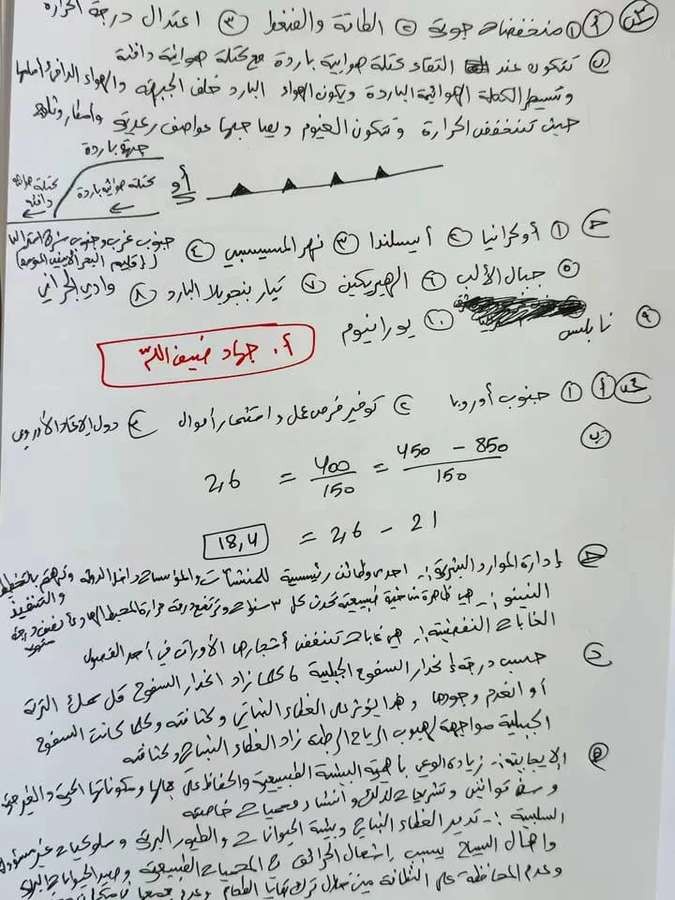 س٣ أ ① منخفضات جوية ② الطاقة والضغط ③ اعتدال درجة الحرارة
ب تتكون عند التقاء كتلة هوائية باردة مع كتلة هوائية دافئة
وتسيطر الكتلة الهوائية الباردة ويكون الهواء البارد خلف الجبهة والهواء الدافئ أمامها
حيث تنخفض الحرارة وتتكون الغيوم ويصاحبها عواصف رعدية وأمطار وثلوج
جبهة باردة
كتلة هوائية دافئة
كتلة هوائية باردة
أو
ج ① أوكرانيا ② أيسلندا ③ نهر المسيسبي ④ جنوب غرب وجنوب شرق استراليا
(إقليم البحر الأبيض المتوسط)
⑤ جبال الألب ⑥ الهيريكين ⑦ تيار بنجويلا البارد ⑧ وادي
⑨ نابلس ⑩ يورانيوم
أ. جهاد ضيف الله
س٤ أ ① جنوب أوروبا ② توفير فرص عمل واستثمار أموال ③ دول الاتحاد الأوروبي
ب
2,6 = 400/150 = 450 - 850/150
18,4 = 2,6 - 21
ج إدارة الموارد البشرية :- احدى وظائف رئيسية للمنشآت والمؤسسات داخل الدولة وتهتم بالتخطيط والتنفيذ
النينو :- هي ظاهرة مناخية طبيعية تحدث كل ٣ سنوات وترتفع درجة حرارة المحيط الهادئ نصف درجة مئوية
الغابات النفضية :- هي غابات تنفض أشجارها الأوراق في أحد الفصول
د حسب درجة انحدار السفوح الجبلية كلما زاد انحدار السفوح قل سمك التربة
أو انعدم وجودها وهذا يؤثر على الغطاء النباتي وكثافته وكلما كانت السفوح
الجبلية مواجهة لهبوب الرياح الرطبة زاد الغطاء النباتي وكثافته
هـ الإيجابية :- زيادة الوعي بأهمية البيئة الطبيعية والحفاظ على جمالها ومكوناتها الحية والغير حية
وسن قوانين وتشريعات لذلك وانشاء محميات خاصة
السلبية :- تدمير الغطاء النباتي وبيئة الحيوانات والطيور البرية وسلوكيات غير مسؤولة
واهمال السياح بسبب إشعال الحرائق في المحميات الطبيعية وصيد الحيوانات البرية
وعدم المحافظة على النظافة من خلال ترك بقايا الطعام وعدم جمعها